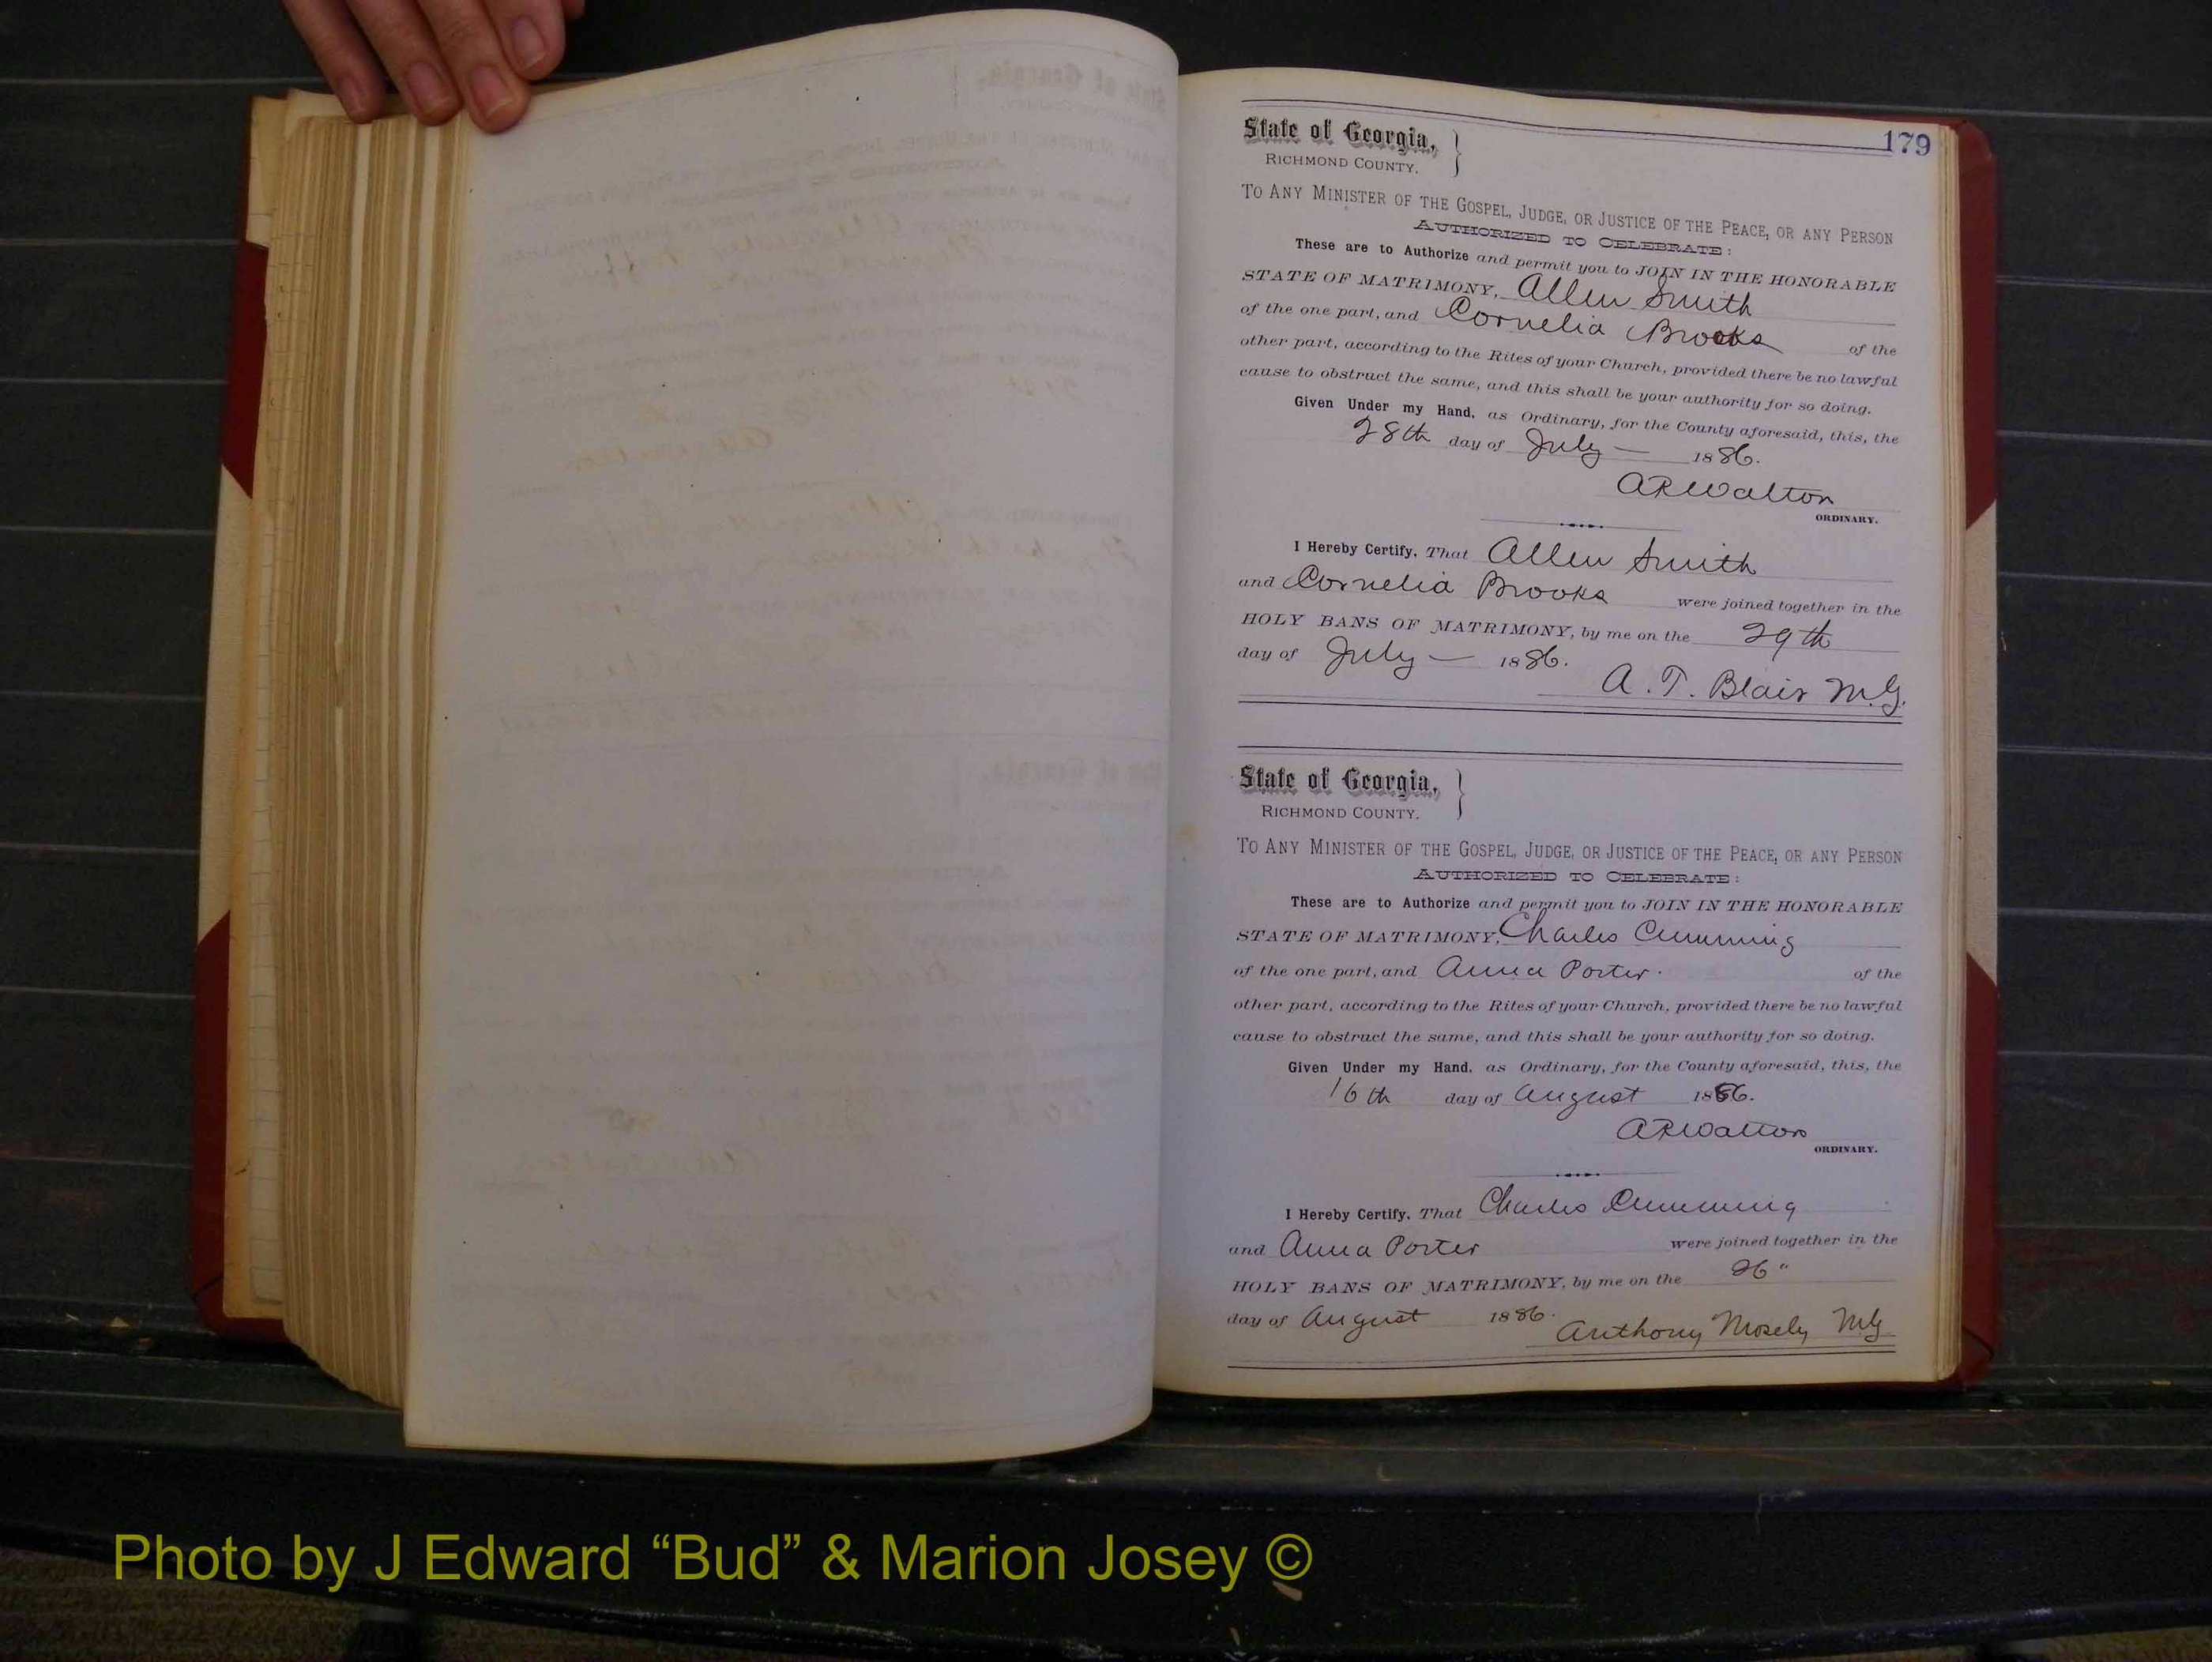 179
State of Georgia,
RICHMOND COUNTY.
TO ANY MINISTER OF THE GOSPEL, JUDGE, OR JUSTICE OF THE PEACE, OR ANY PERSON
AUTHORIZED TO CELEBRATE:
These are to Authorize and permit you to JOIN IN THE HONORABLE
STATE OF MATRIMONY, Allen Smith
of the one part, and Cornelia Brooks of the
other part, according to the Rites of your Church, provided there be no lawful
cause to obstruct the same, and this shall be your authority for so doing.
Given Under my Hand, as Ordinary, for the County aforesaid, this, the
28th day of July — 1886.
ARWalton
ORDINARY.
I Hereby Certify, That Allen Smith
and Cornelia Brooks were joined together in the
HOLY BANS OF MATRIMONY, by me on the 29th
day of July — 1886.
A. T. Blair M.G.
State of Georgia,
RICHMOND COUNTY.
TO ANY MINISTER OF THE GOSPEL, JUDGE, OR JUSTICE OF THE PEACE, OR ANY PERSON
AUTHORIZED TO CELEBRATE:
These are to Authorize and permit you to JOIN IN THE HONORABLE
STATE OF MATRIMONY, Charles Cumming
of the one part, and Anna Porter. of the
other part, according to the Rites of your Church, provided there be no lawful
cause to obstruct the same, and this shall be your authority for so doing.
Given Under my Hand, as Ordinary, for the County aforesaid, this, the
16th day of August 1886.
ARWalton
ORDINARY.
I Hereby Certify, That Charles Cumming
and Anna Porter were joined together in the
HOLY BANS OF MATRIMONY, by me on the 26"
day of August 1886.
Anthony Mosely MG
Photo by J Edward “Bud” & Marion Josey ©